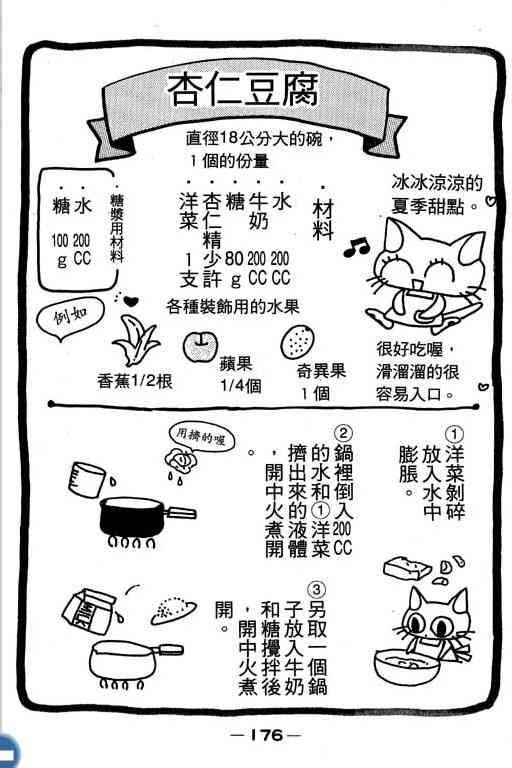 杏仁豆腐
直徑18公分大的碗，
1個的份量
冰冰涼涼的
夏季甜點。
・材料
・水 200CC
・牛奶 200CC
・糖 80g
・杏仁精 少許
・洋菜 1支
糖漿用材料
・水 200CC
・糖 100g
各種裝飾用的水果
例如
香蕉1/2根
蘋果
1/4個
奇異果
1個
很好吃喔，
滑溜溜的很
容易入口。
①洋菜剝碎
放入水中
膨脹。
②鍋裡倒入200CC
的水和①洋菜
擠出來的液體
，開中火煮開
。
用擠的喔
③另取一個鍋
子放入牛奶
和糖攪拌後
，開中火煮
開。
MILK
—176—